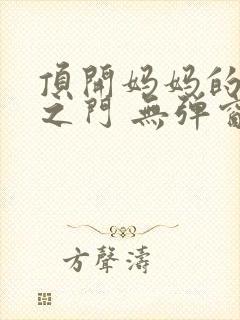 頂開妈妈的
之门 無弹窗
方聲濤